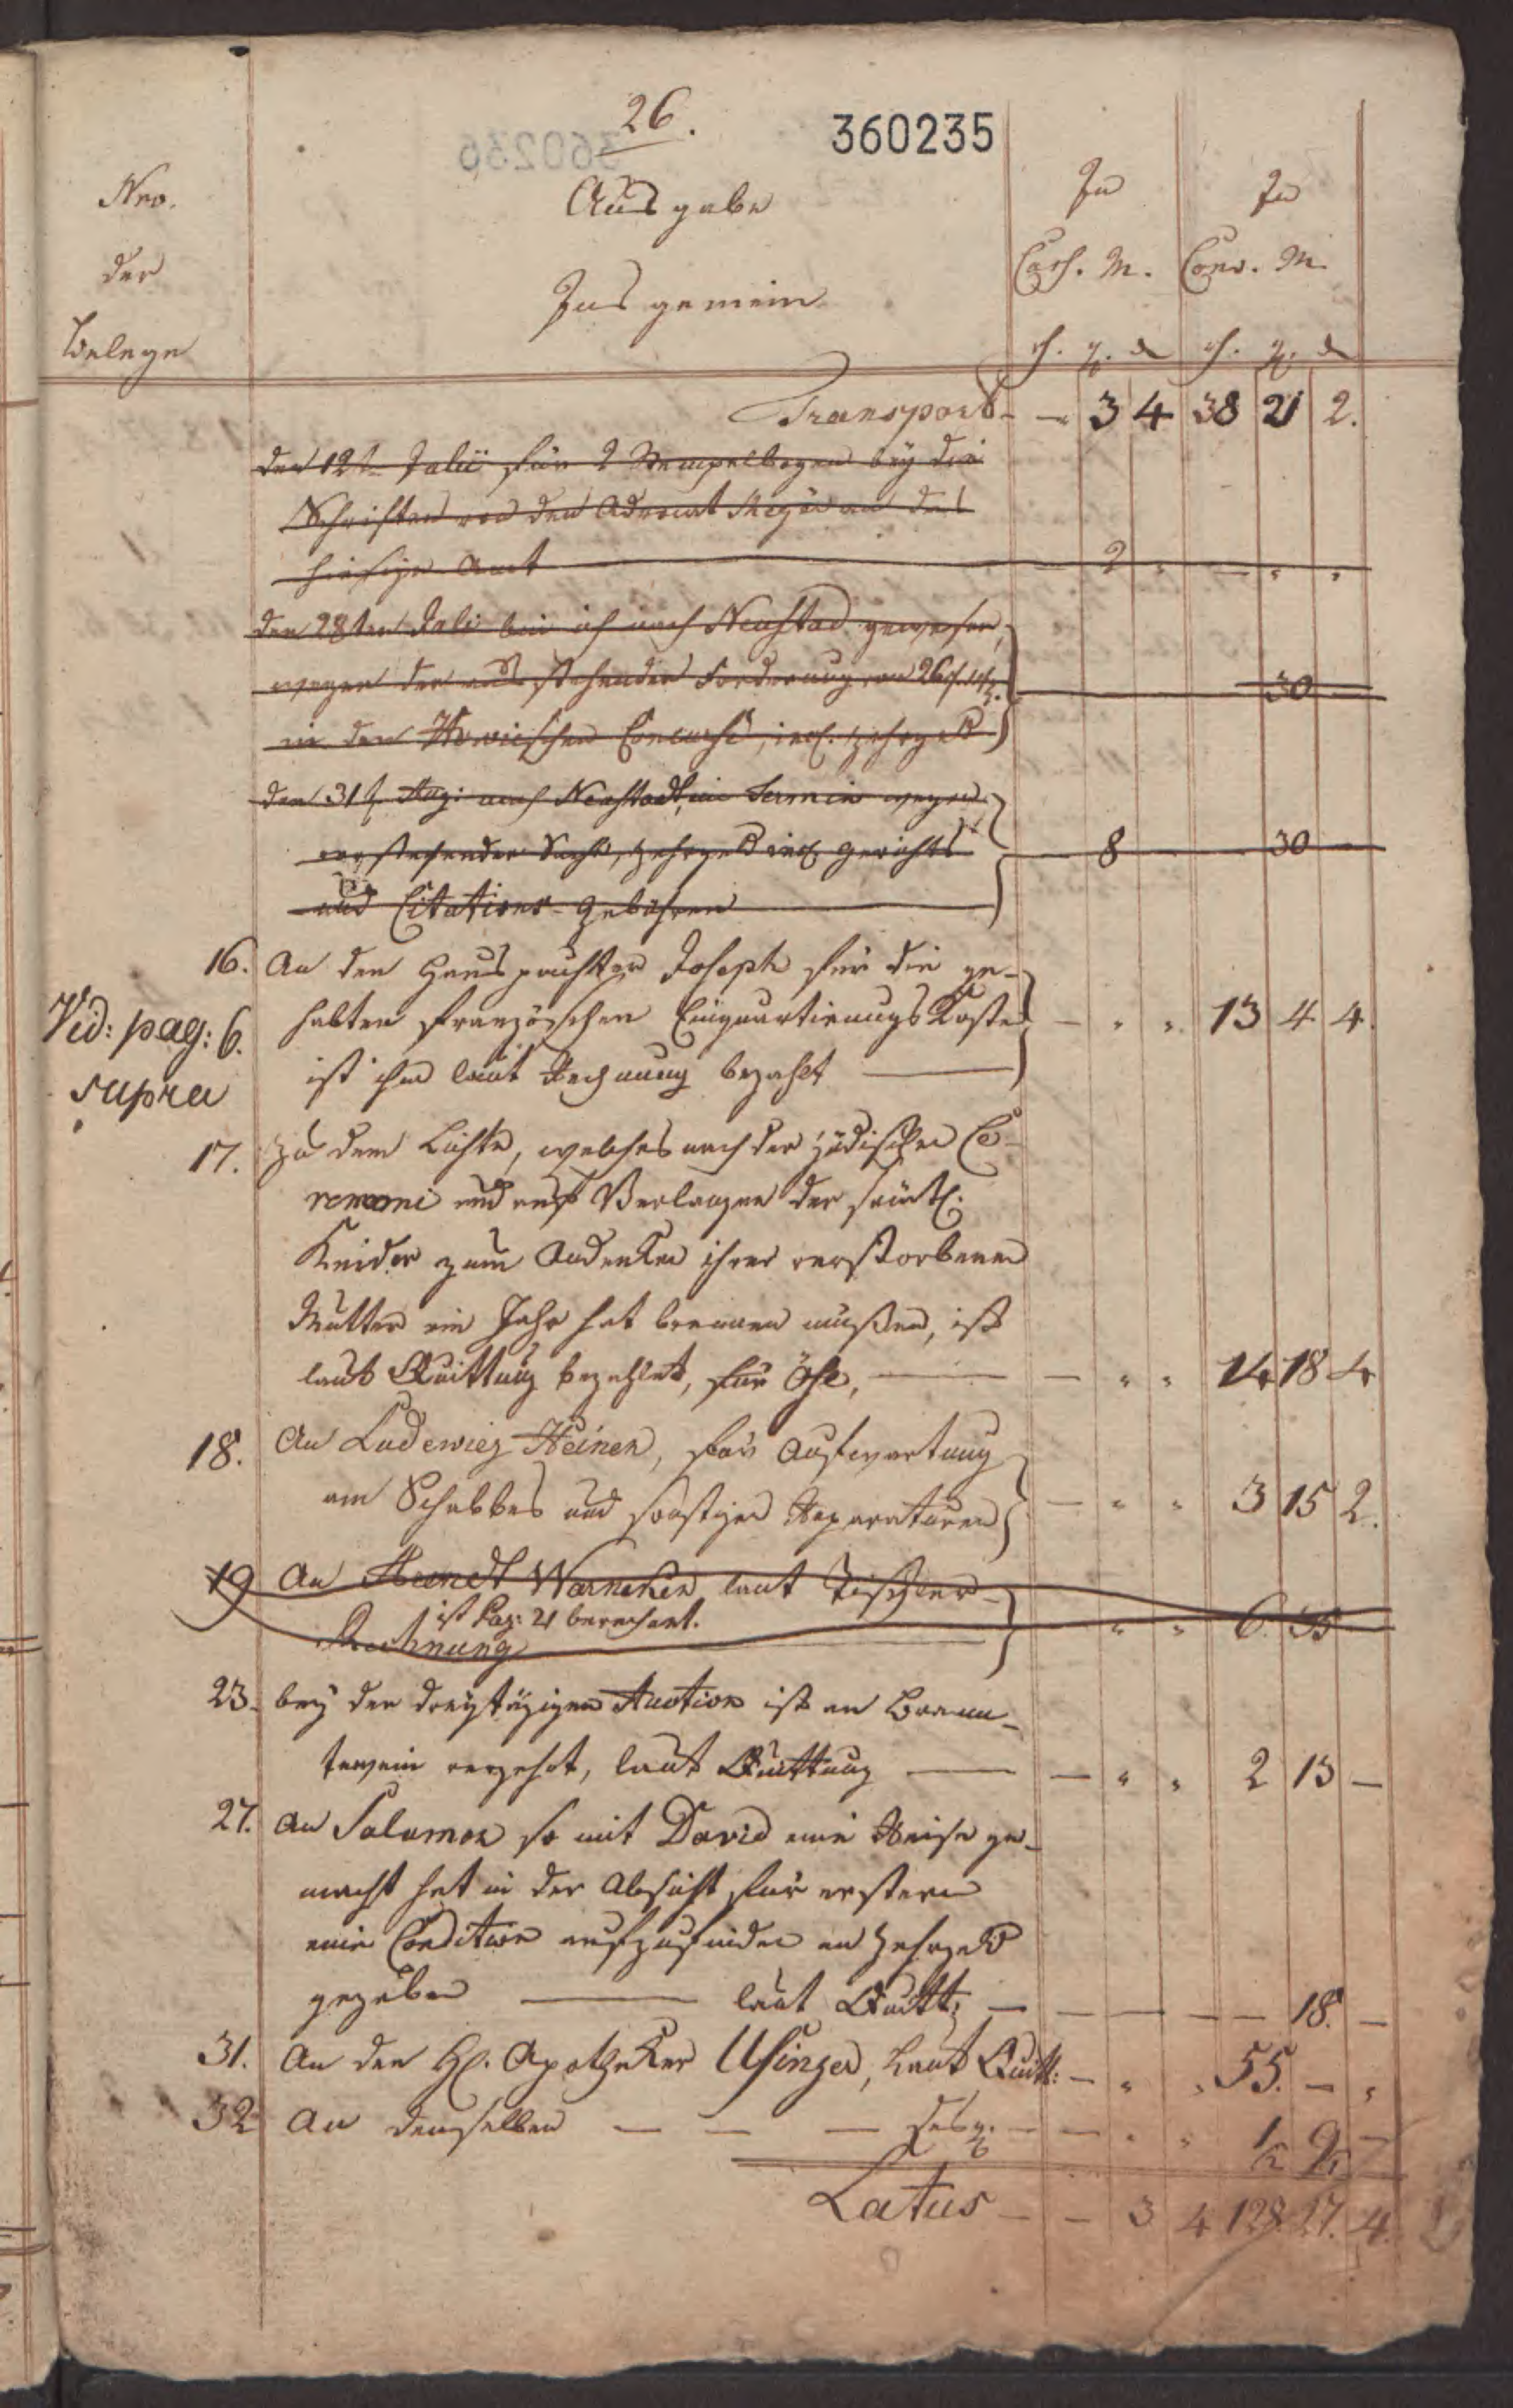 26.
360235
Nro.
der
Belege
Ausgabe
Ins gemein
In
Cass. M.
In
Conv. M.
rh. g. d rh. g. d
Transport - - 3 4 38 21 2.
den 12t Julii für 2 Stempelbogen bey die
Schriften von den Advocat Meyer an das
hiesige Amt 2
den 28ten Juli bin ich nach Neustad gewesen,
wegen der ausstehenden Forderung von 26
in den Concurse, incl. Zehrgeld 30
den 31t Aug: nach Neustadt, im Termin wegen
vorstehender Sache, Zehrgeld incl. Gerichts
und Citations-Gebühren 8 30
16. An den Hauspächter Joseph für die ge-
habten französchen Einquartirungs Kosten 13 4 4.
ist ihm laut Rechnung bezahlt
Vid: pag: 6.
supra
17. Zu dem Lichte, welches nach der jüdischen Ce-
remonie und auf Verlangen der sämtl.
Kinder zum Andenken ihrer verstorbenen
Mutter ein Jahr hat brennen müßen, ist
laut Quittung bezahlet, für Öhl, 14 18 4
18. An Ludewieg Heinen, für Aufwartung
am Schabbes und sonstigen Reparaturen 3 15 2.
19 An Warneken laut Tischler-
ist Pag: 21 berechnet.
Rechnung 6 35
23. bey der dreytägigen Auction ist an Brann-
tewein verzehrt, laut Quittung 2 13 -
27. An Salomon so mit David eine Reise ge-
macht hat in der Absicht für erstern
eine Condition aufzufinden an Zehrgeld
gegeben laut Quitt: 18. -
31. An den H. Apotheker Usinger, laut Quitt: 55. -
32 An denselben - - - desgl.
Latus - - 3 4 128 27. 4.